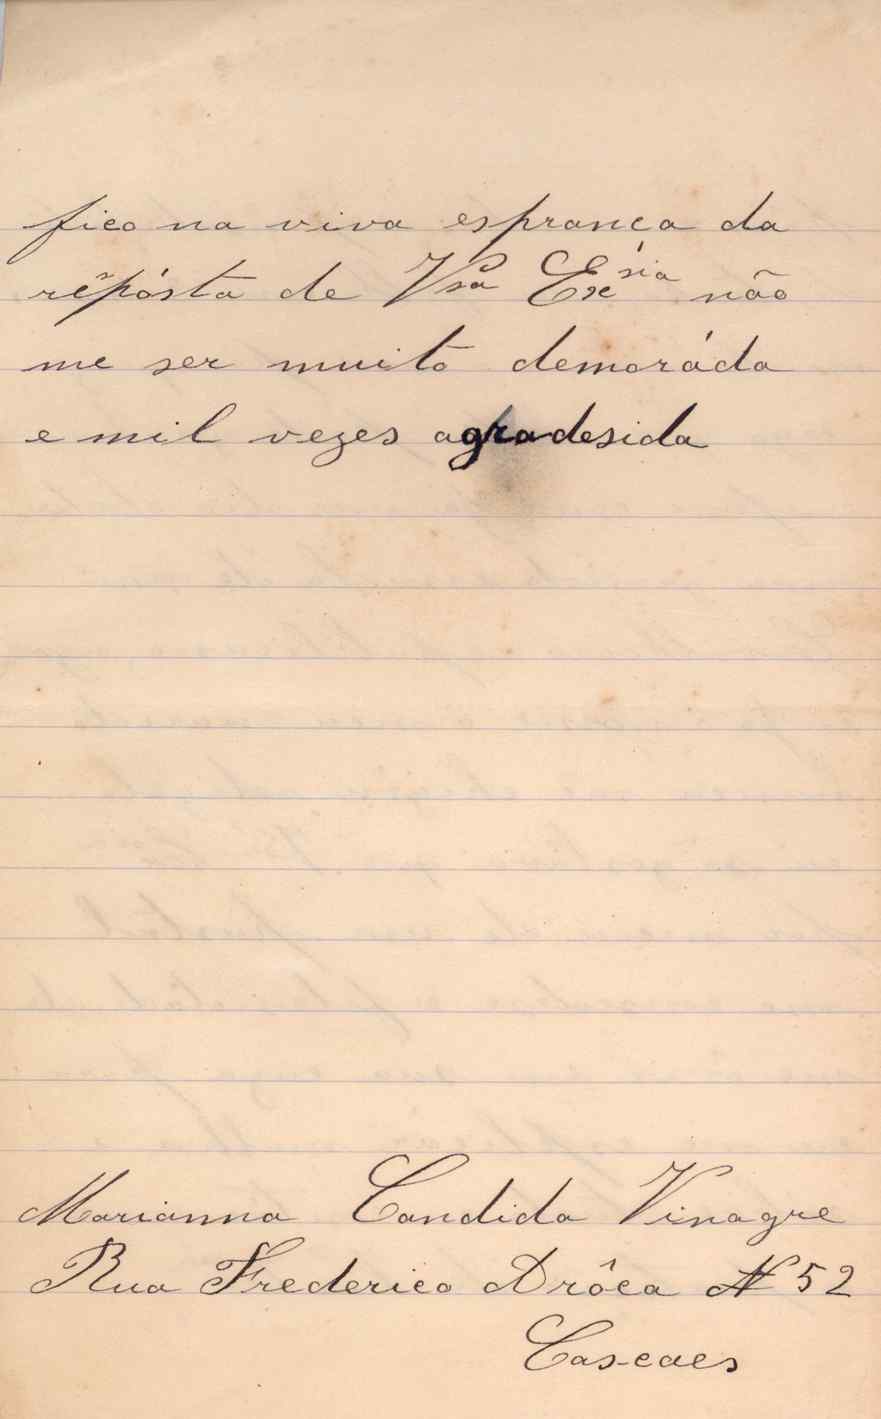 fico na viva esprança da
respósta de Vsª Exsia não
me ser muito demoráda
e mil vezes agradesida
Marianna Candida Vinagre
Rua Frederico Drôca N 52
Cascaes